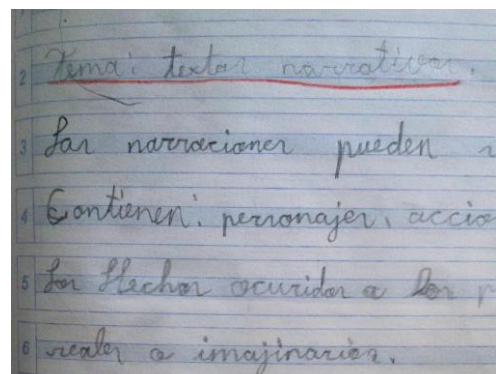 2 Tema: textos narrativos.
3 Las narraciones pueden
4 Contienen: personajes, accio
5 Los Hechos ocuridos a los p
6 reales o imajinarios.